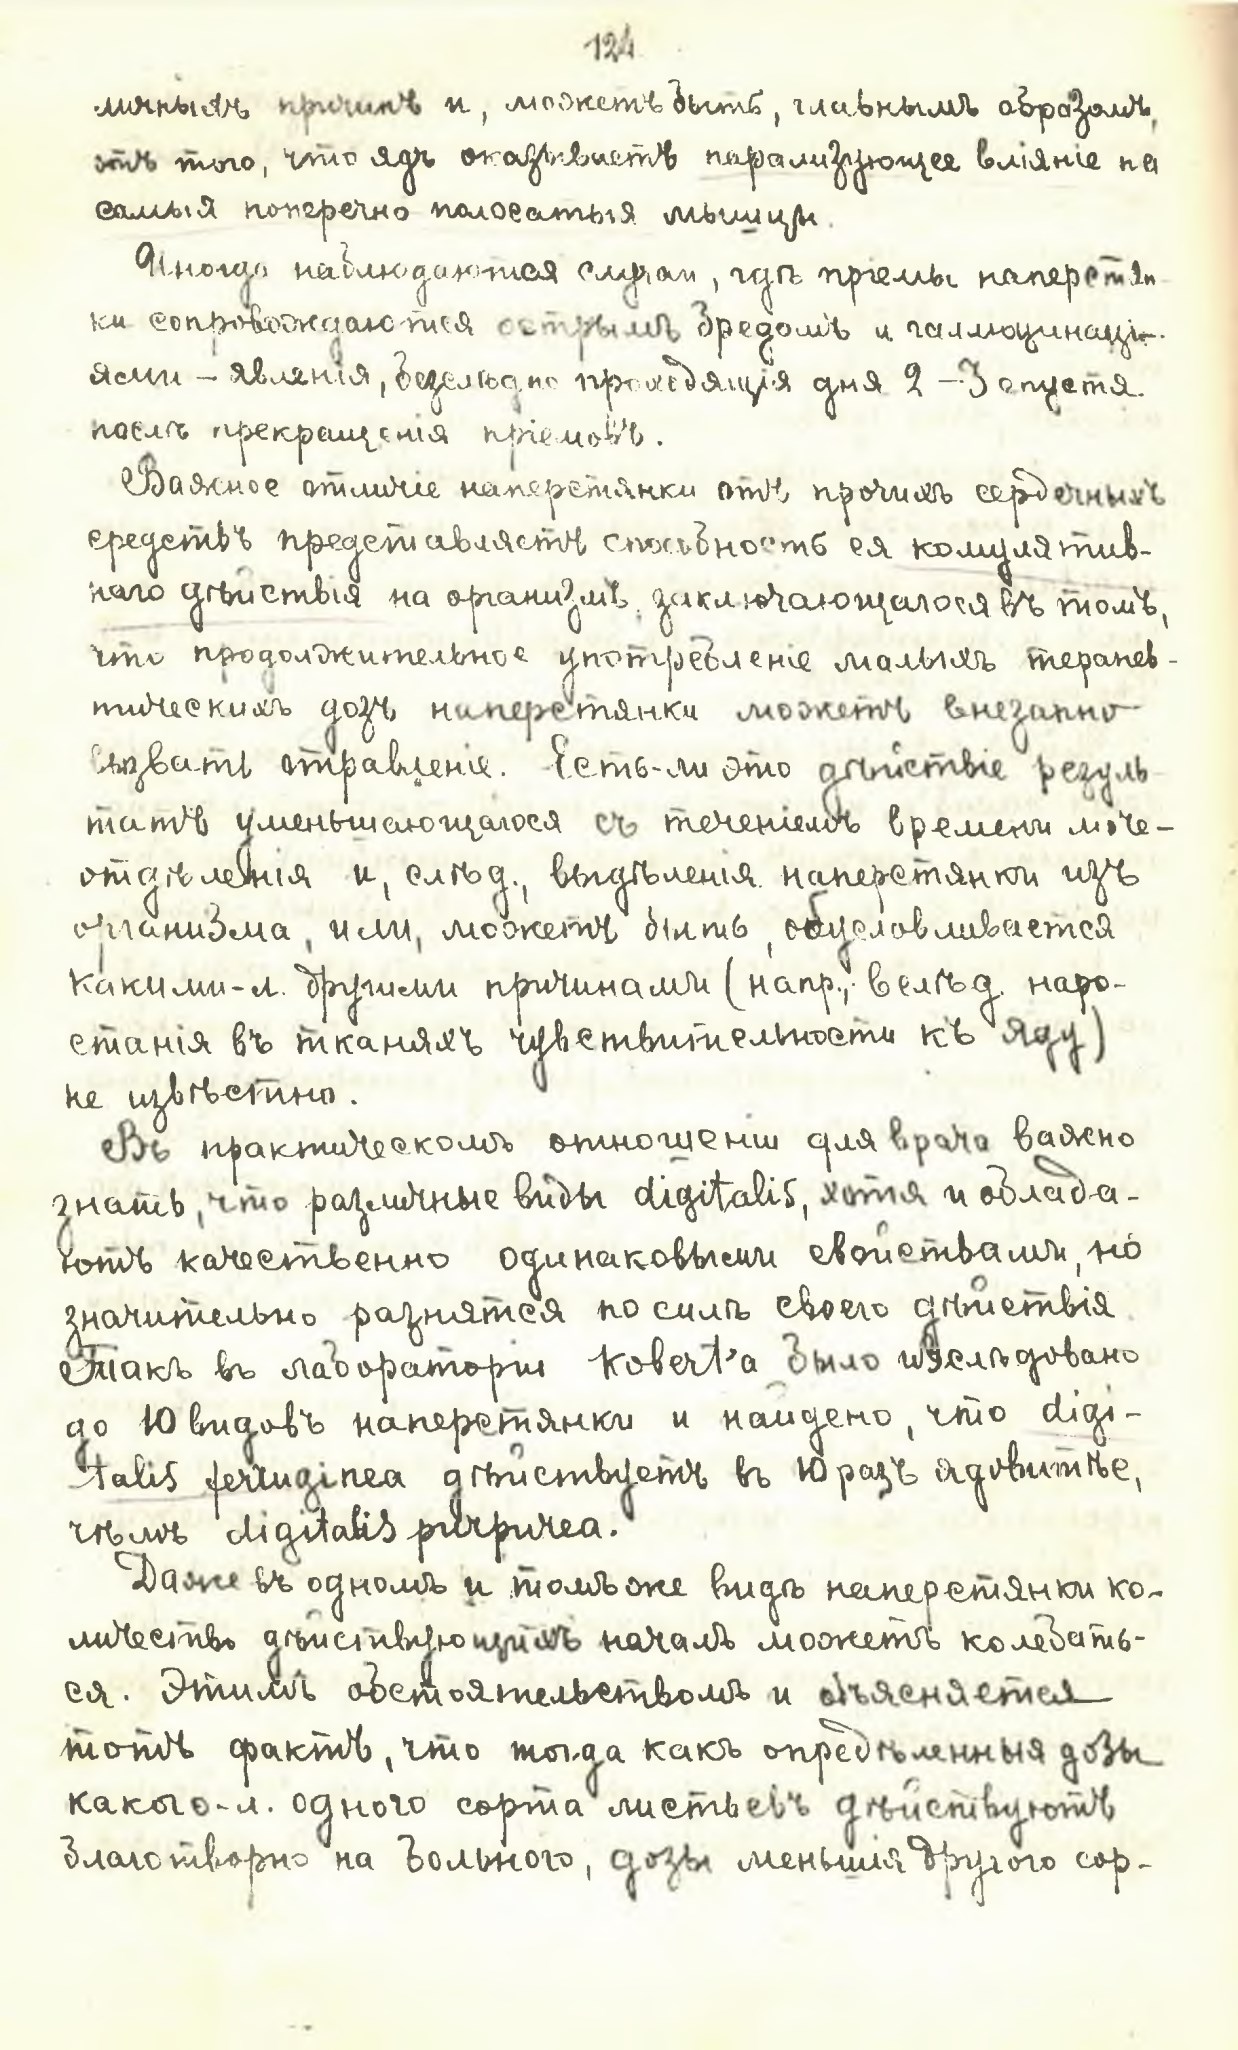 124
личныхъ причинъ и, можетъ быть, главнымъ образомъ,
отъ того, что ядъ оказываетъ парализующее вліяніе на
самыя поперечно полосатыя мышцы.
Иногда наблюдаются случаи, гдѣ пріемы наперстян-
ки сопровождаются острымъ бредомъ и галлюцинаці-
ями – явленія, безслѣдно проходящія дня 2 – 3 спустя
послѣ прекращенія пріемовъ.
Важное отличіе наперстянки отъ прочихъ сердечныхъ
средствъ представляетъ способность ея комулятив-
наго дѣйствія на организмъ, заключающагося въ томъ,
что продолжительное употребленіе малыхъ терапев-
тическихъ дозъ наперстянки можетъ внезапно
вызвать отравленіе. Есть-ли это дѣйствіе резуль-
татъ уменьшающагося съ теченіемъ времени моче-
отдѣленія и, слѣд., выдѣленія наперстянки изъ
организма, или, можетъ быть, обусловливается
какими-л. другими причинами (напр., вслѣд. наро-
станія въ тканяхъ чувствительности къ яду)
не извѣстно.
Въ практическомъ отношеніи для врача важно
знать, что различные виды digitalis, хотя и облада-
ютъ качественно одинаковыми свойствами, но
значительно разнятся по силѣ своего дѣйствія.
Такъ въ лабораторіи Kobert'a было изслѣдовано
до 10 видовъ наперстянки и найдено, что digi-
talis ferruginea дѣйствуетъ въ 10 разъ ядовитѣе,
чѣмъ digitalis purpurea.
Даже въ одномъ и томъ же видѣ наперстянки ко-
личество дѣйствующихъ началъ можетъ колебать-
ся. Этимъ обстоятельствомъ и объясняется
тотъ фактъ, что тогда какъ опредѣленныя дозы
какого-л. одного сорта листьевъ дѣйствуютъ
благотворно на больного, дозы меньшія другого сор-